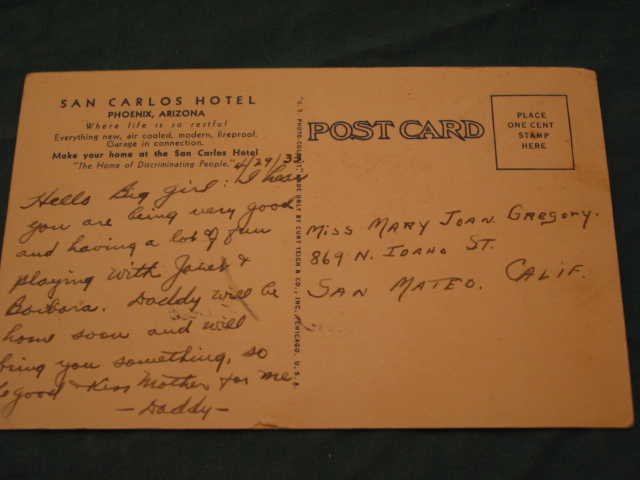 SAN CARLOS HOTEL
PHOENIX, ARIZONA
Where life is so restful
Everything new, air cooled, modern, fireproof.
Garage in connection.
Make your home at the San Carlos Hotel
"The Home of Discriminating People."
4/29/38
Hello Big girl: I hear
you are being very good
and having a lot of fun
playing with Janet &
Barbara. Daddy will be
home soon and will
bring you something, so
be good & Kiss Mother for me
- Daddy -
"C. T. PHOTO-COLORIT" MADE ONLY BY CURT TEICH & CO., INC., CHICAGO, U. S. A.
POST CARD
PLACE
ONE CENT
STAMP
HERE
MISS MARY JOAN. GREGORY.
869 N. IDAHO ST.
SAN MATEO. CALIF.